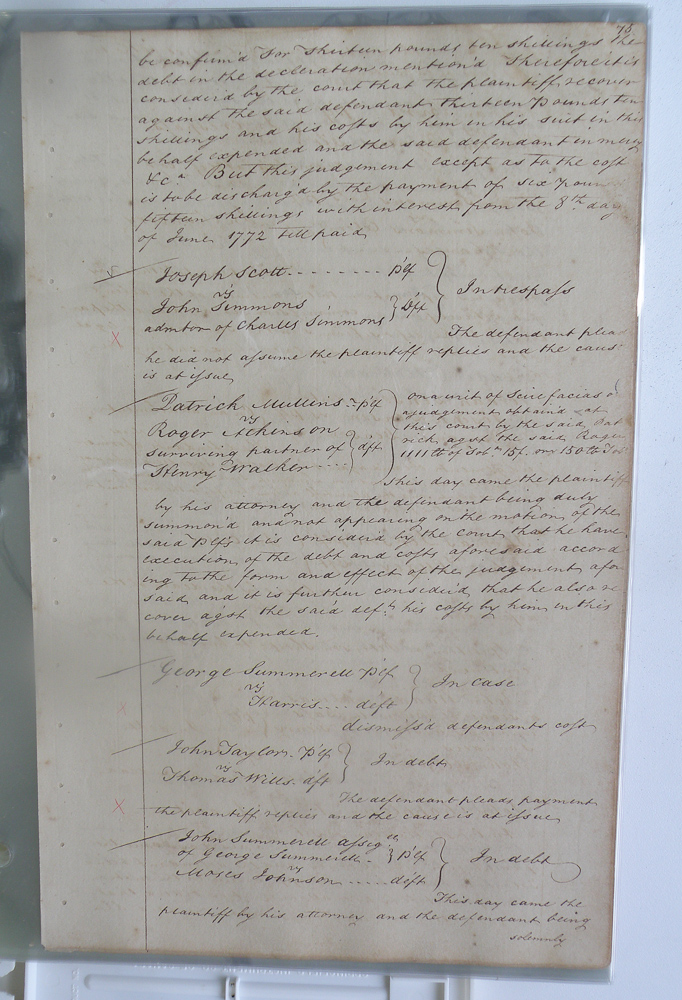 78
be confirm'd for thirteen pounds ten shillings the
debt in the declaration mention'd Therefore it is
consider'd by the court that the plaintiff recover
against the said defendant thirteen pounds ten
shillings and his costs by him in his suit in this
behalf expended and the said defendant in mercy
&c.a But this judgement except as to the cost
is to be discharg'd by the payment of six poun
fifteen shillings with interest from the 8th day
of June 1772 till paid
Joseph Scott - - - - - - - - plf
vs
In trespass
John Simmons
admtor of Charles Simmons } dft
The defendant plea
he did not assume the plaintiff replies and the caus
is at issue
Patrick Mullins - plf
vs
Roger Atkinson
surviving partner of
Henry Walker - - - - } dft
on a writ of Scire facias o
a judgement obtain'd at
this court by the said Pat
rick agst the said Roger
This day came the plaintiff
by his attorney and the defendant being duly
summon'd and not appearing on the motion of the
said plfs it is consider'd by the court that he have
execution of the debt and costs aforesaid accord
ing to the form and effect of the judgement afor
said and it is further consider'd that he also re
cover agst the said deft. his costs by him in this
behalf expended.
George Summerell plf
vs
In case
Harris - - - deft
dismiss'd defendants cost
John Taylor - plf
vs
In debt
Thomas Wills - dft
The defendant pleads payment
the plaintiff replies and the cause is at issue
John Summerell assigee
of George Summerell - } plf
vs
In debt
Moses Johnson - - - - - deft
This day came the
plaintiff by his attorney and the defendant being
solemnly